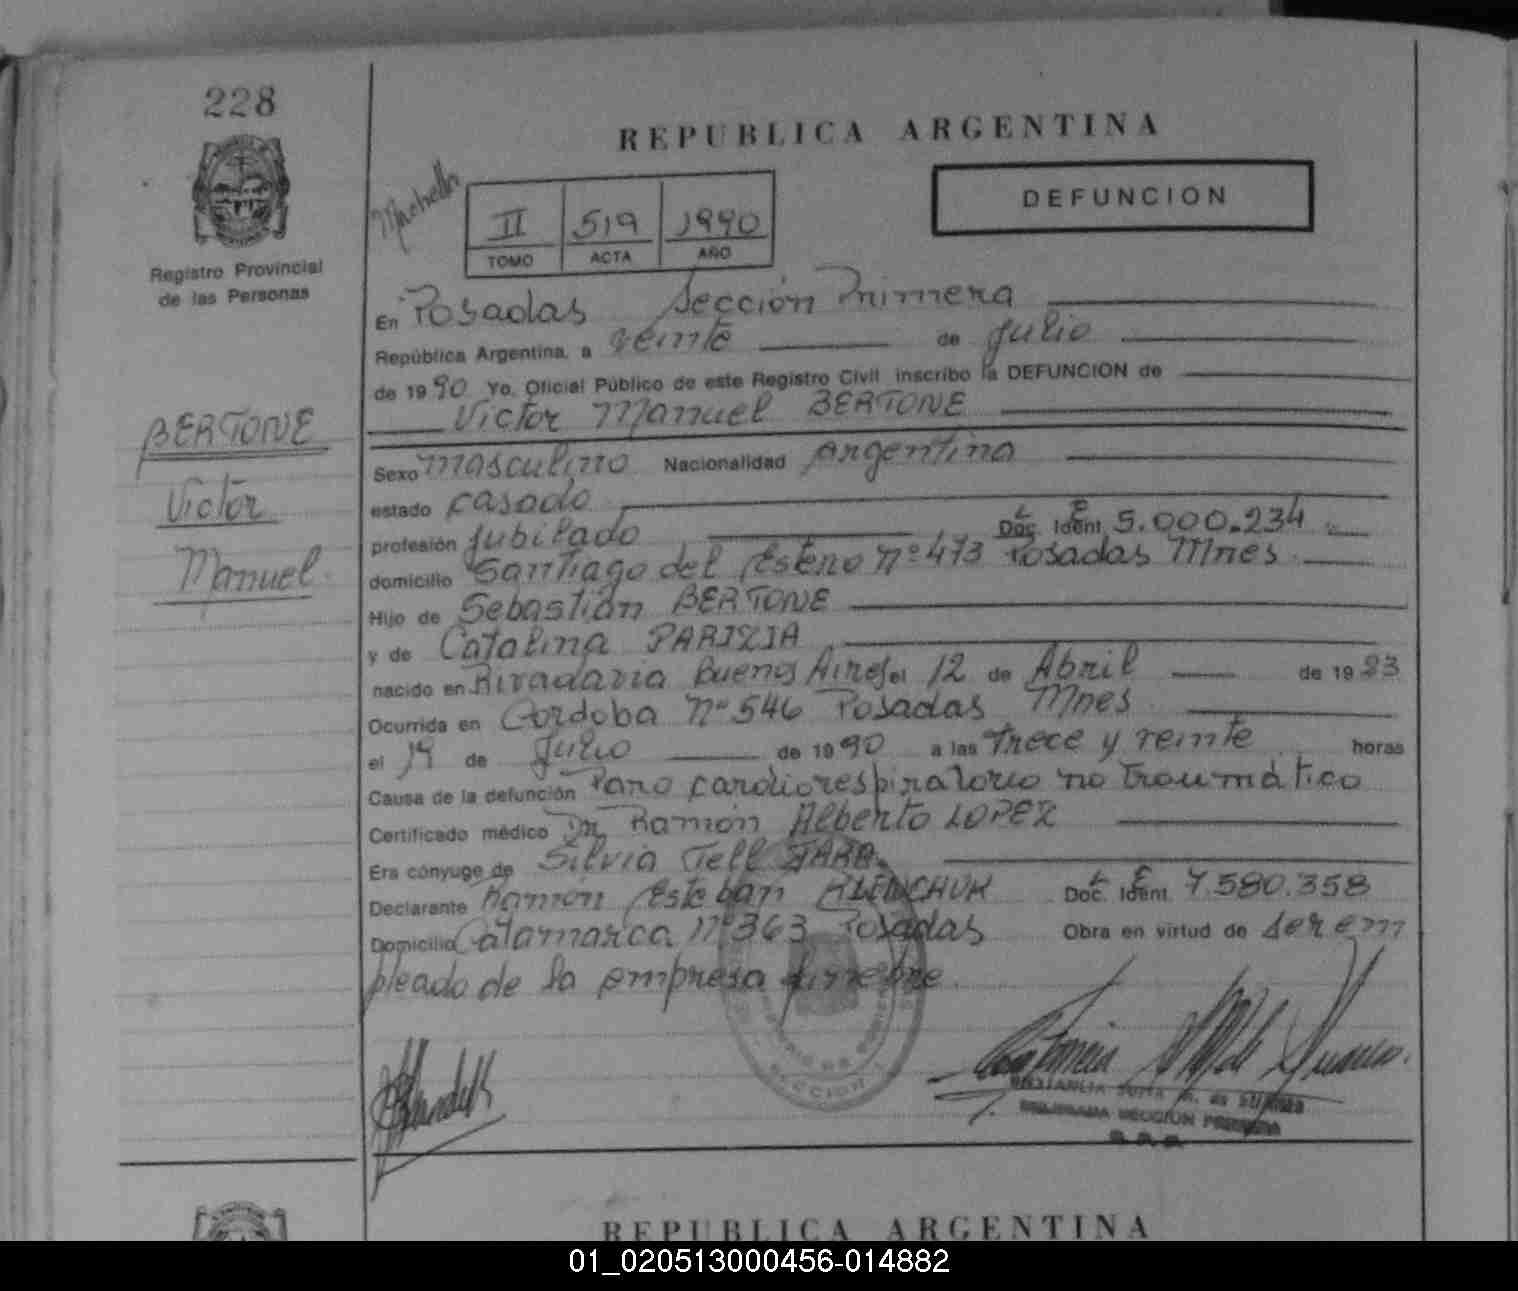 228
Registro Provincial
de las Personas
BERTONE
Victor
Manuel
REPUBLICA ARGENTINA
DEFUNCION
II 519 1990
TOMO ACTA AÑO
En Posadas Sección Primera
República Argentina, a veinte de Julio
de 1990 Yo, Oficial Público de este Registro Civil inscribo la DEFUNCION de
Victor Manuel BERTONE
Sexo masculino Nacionalidad argentina
estado casado
L E
profesión jubilado Doc. Ident. 5.000.234
domicilio Santiago del Estero Nº 473 Posadas Mnes
Hijo de Sebastián BERTONE
y de Catalina
nacido en Rivadavia Buenos Aires el 12 de Abril de 1923
Ocurrida en Cordoba Nº 546 Posadas Mnes
el 19 de Julio de 1990 a las trece y veinte horas
Causa de la defunción Paro cardiorespiratorio no traumático
Certificado médico Dr. Ramón Alberto LOPEZ
Era cónyuge de Silvia Tell JARA
L E
Declarante Ramón Esteban Doc. Ident. 7.580.358
Domicilio Catamarca Nº 363 Posadas Obra en virtud de ser em
pleado de la empresa funebre.
SECCION
REPUBLICA ARGENTINA
01_020513000456-014882